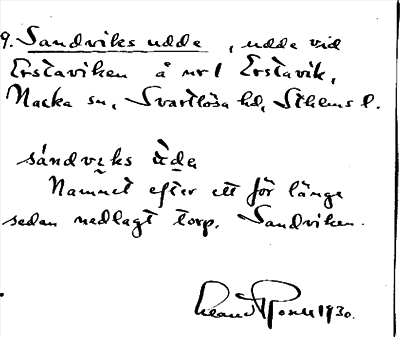 9. Sandviks udde, udde vid
Erstaviken å nr 1 Erstavik,
Nacka sn, Svartlösa hd, Sthems l.
sándvcks ùde
Namnet efter ett för länge
sedan nedlagt torp, Sandviken.
1930.